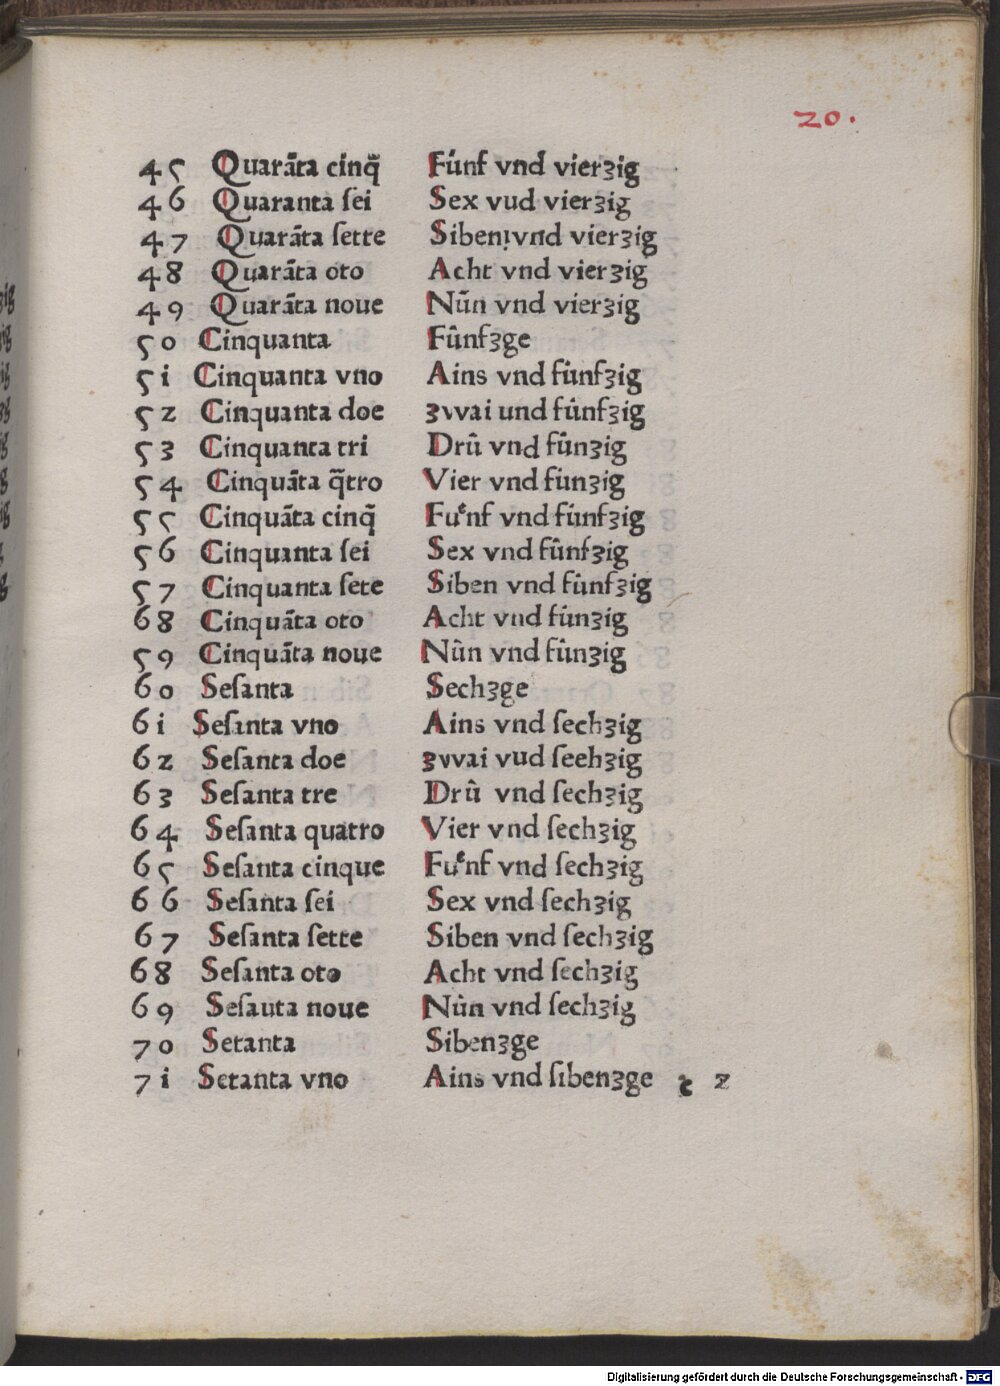 20.
45 Quarãta cinq̃ Fu̇nf vnd vierʒig
46 Quaranta ſei Sex vud vierʒig
47 Quarãta ſette Siben vnd vierʒig
48 Quarãta oto Acht vnd vierʒig
49 Quarãta noue Nu̇n vnd vierʒig
50 Cinquanta Fûnfʒge
5i Cinquanta vno Ains vnd fûnfʒig
52 Cinquanta doe ʒvvai und fûnfʒig
53 Cinquanta tri Drû vnd fûnʒig
54 Cinquãta q̃tro Vier vnd fûnʒig
55 Cinquãta cinq̃ Fuͤnf vnd fûnfʒig
56 Cinquanta ſei Sex vnd fûnfʒig
57 Cinquanta ſete Siben vnd fûnfʒig
68 Cinquãta oto Acht vnd fûnʒig
59 Cinquãta noue Nûn vnd fûnʒig
60 Seſanta Sechʒge
6i Seſanta vno Ains vnd ſechʒig
62 Seſanta doe ʒvvai vud ſeehʒig
63 Seſanta tre Drû vnd ſechʒig
64 Seſanta quatro Vier vnd ſechʒig
65 Seſanta cinque Fuͤnf vnd ſechʒig
66 Seſanta ſei Sex vnd ſechʒig
67 Seſanta ſette Siben vnd ſechʒig
68 Seſanta oto Acht vnd ſechʒig
69 Seſauta noue Nûn vnd ſechʒig
70 Setanta Sibenʒge
7i Setanta vno Ains vnd ſibenʒge c 2
Digitalisierung gefördert durch die Deutsche Forschungsgemeinschaft - DFG